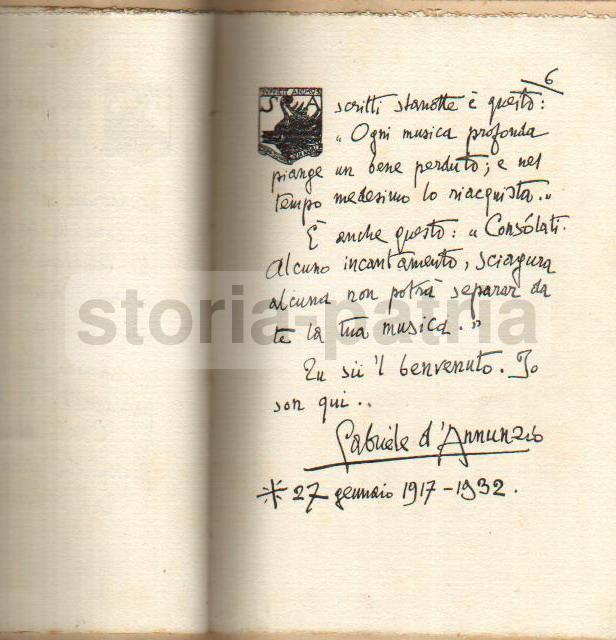 6
SUFFICIT ANIMUS
S A
scritti stanotte è questo:
"Ogni musica profonda
piange un bene perduto; e nel
tempo medesimo lo riacquista."
È anche questo: "Consólati.
Alcuno incantamento, sciagura
alcuna non potrà separar da
te la tua musica."
Tu sii 'l benvenuto. Io
son qui..
Gabriele d'Annunzio
* 27 gennaio 1917-1932.
storia-patria